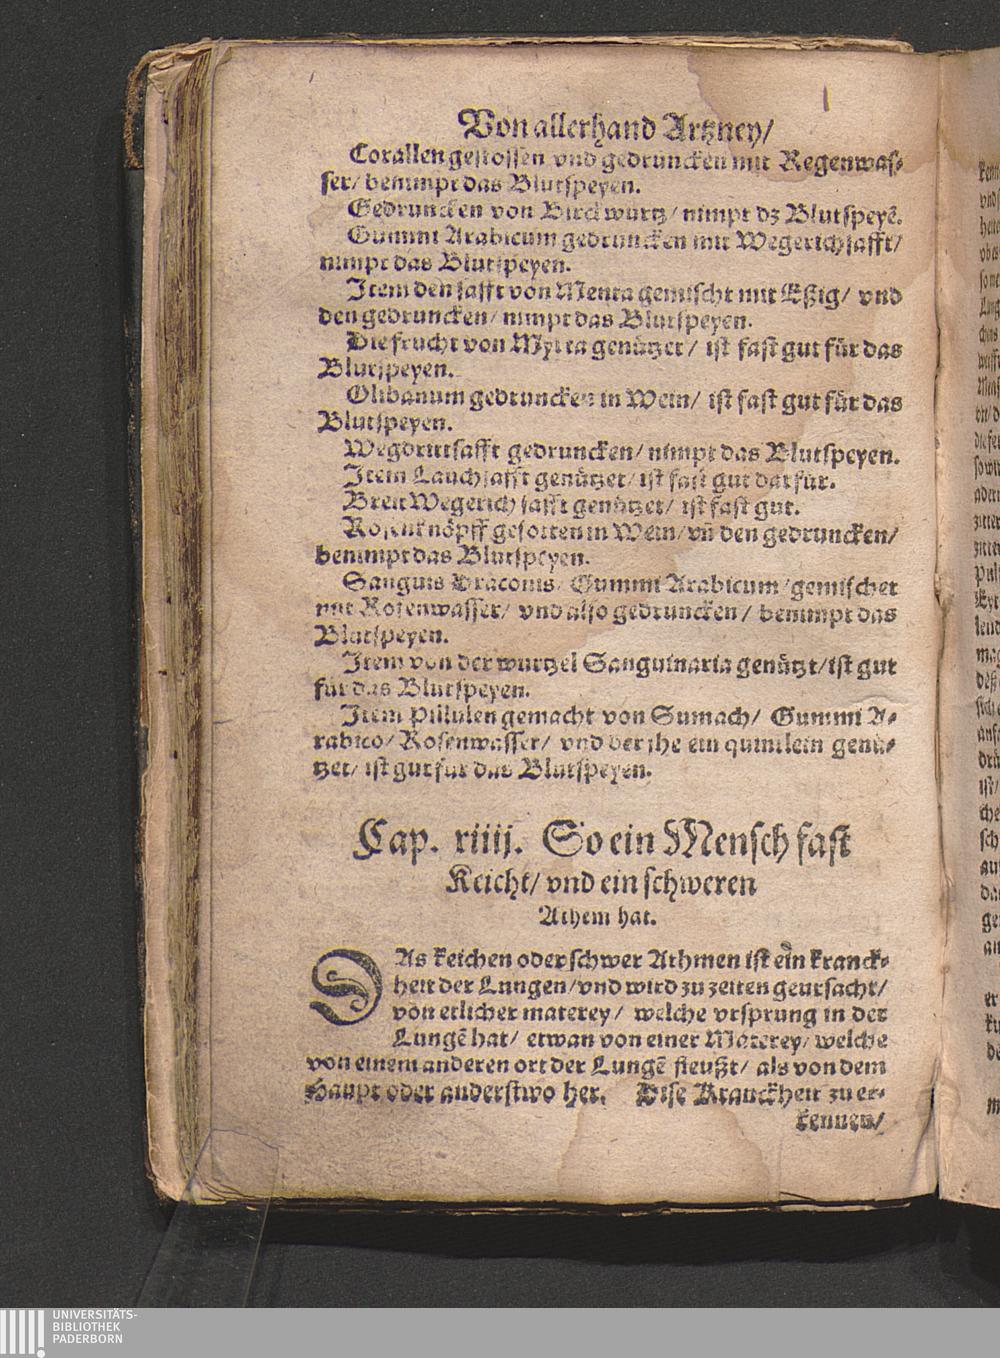 Von allerhand Artzney/
Corallen gestossen vnd gedruncken mit Regenwas-
ser/ benimpt das Blutspeyen.
Gedruncken von Birckwurtz/ nimpt dz Blutspeyẽ.
Gummi Arabicum gedruncken mit Wegerichsafft/
nimpt das Blutspeyen.
Item den safft von Menta gemischt mit Eßig/ vnd
den gedruncken/ nimpt das Blutspeyen.
Die frucht von Myrta genützet/ ist fast gut für das
Blutspeyen.
Olibanum gedruncken in Wein/ ist fast gut für das
Blutspeyen.
Wegdrittsafft gedruncken/ nimpt das Blutspeyen.
Item Lauchsafft genützet/ ist fast gut darfür.
Breit Wegerich safft genützet/ ist fast gut.
Rosenknöpff gesotten in Wein/ vñ den gedruncken/
benimpt das Blutspeyen.
Sanguis Draconis/ Gummi Arabicum/ gemischet
mit Rosenwasser/ vnd also gedruncken/ benimpt das
Blutspeyen.
Item von der wurtzel Sanguinaria genützt/ ist gut
für das Blutspeyen.
Item Pillulen gemacht von Sumach/ Gummi A-
rabico/ Rosenwasser/ vnd der jhe ein quintlein genü-
tzet/ ist gut für das Blutspeyen.
Cap. xiiij. So ein Mensch fast
Keicht/ vnd ein schweren
Athem hat.
DAs keichen oder schwer Athmen ist ein kranck-
heit der Lungen/ vnd wird zu zeiten geursacht/
von etlicher materey/ welche vrsprung in der
Lungẽ hat/ etwan von einer Materey/ welche
von einem anderen ort der Lungẽ fleußt/ als von dem
Haupt oder anderstwo her. Dise Kranckheit zu er-
kennen/
UNIVERSITÄTS-
BIBLIOTHEK
PADERBORN